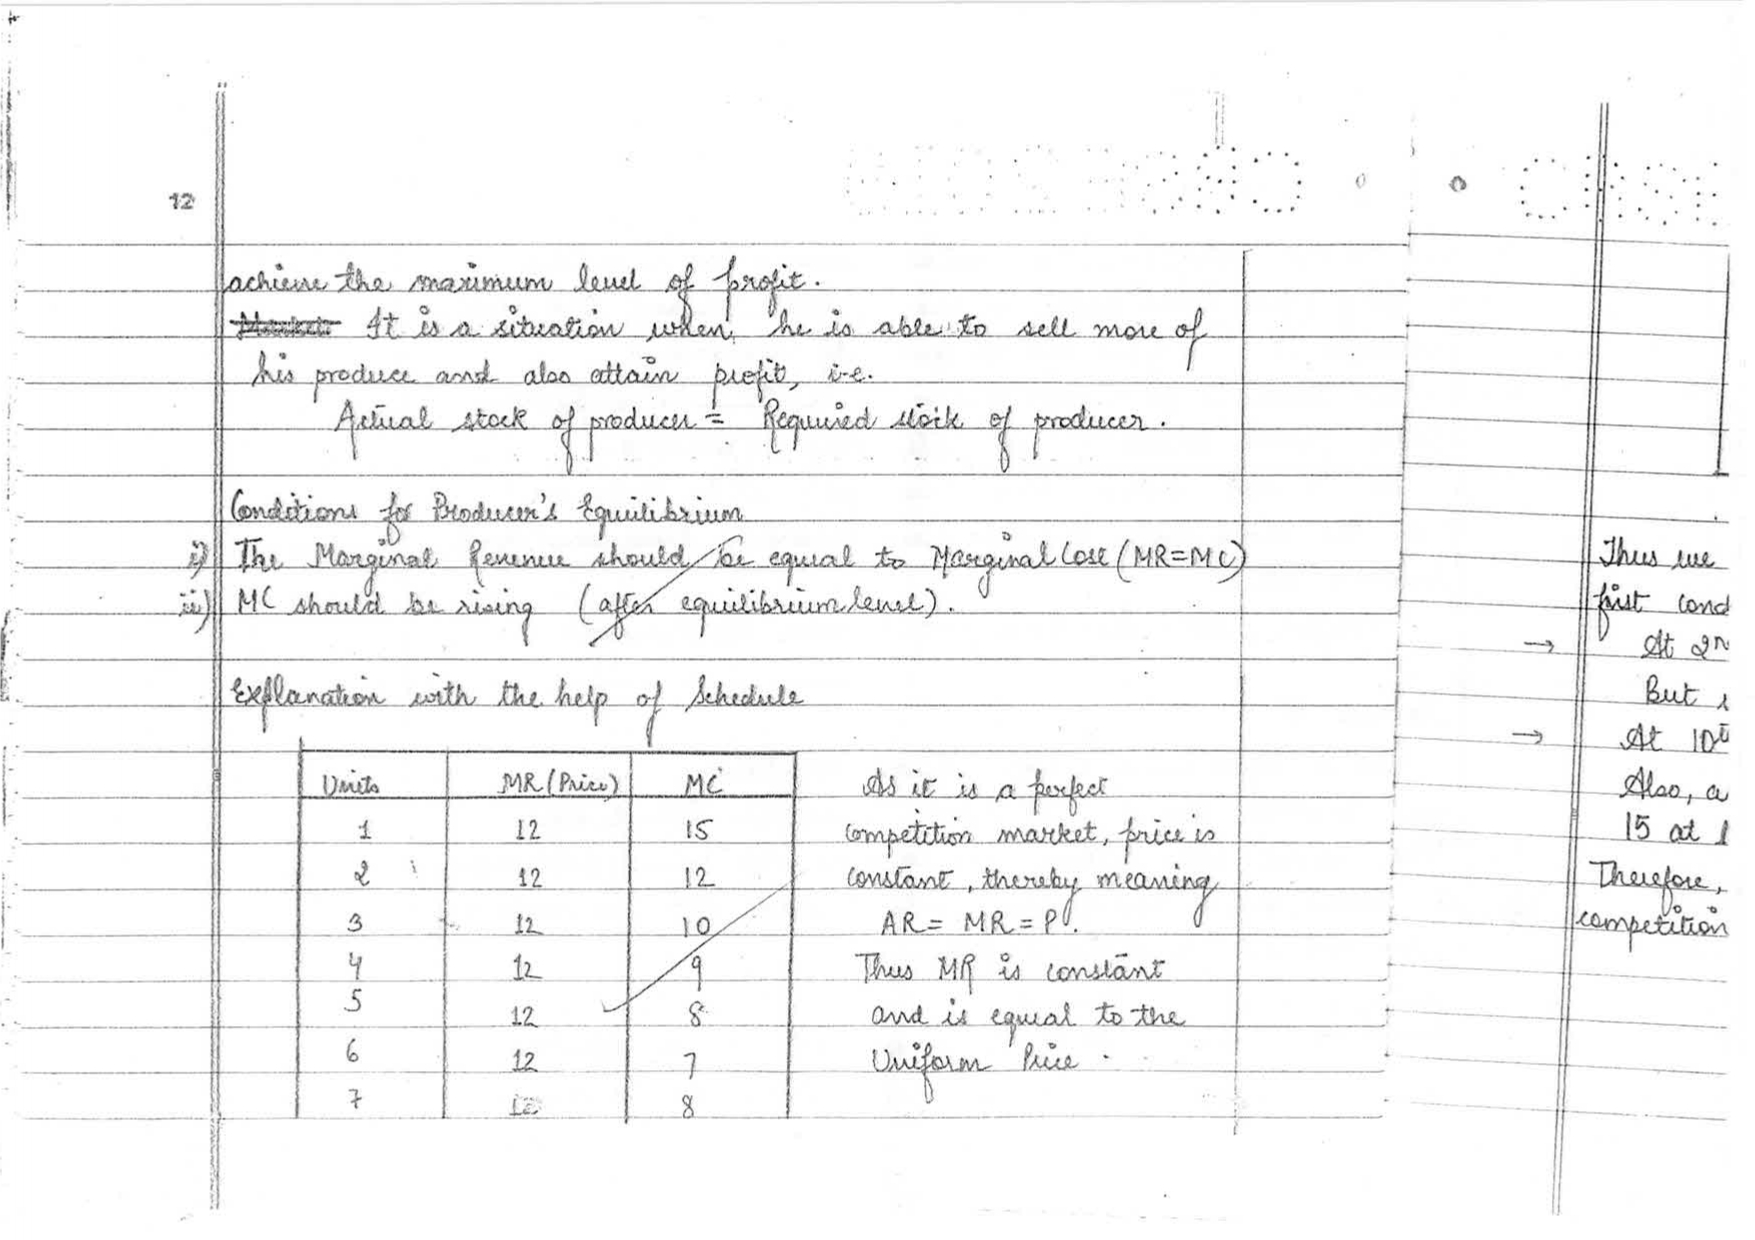 12
achieve the maximum level of profit.
It is a situation when he is able to sell more of
his produce and also attain profit, i.e.
Actual stock of producer = Required stock of producer.
Conditions for Producer's Equilibrium
i) The Marginal Revenue should be equal to Marginal Cost (MR=MC)
ii) MC should be rising (after equilibrium level).
Explanation with the help of Schedule
Units MR (Price) MC
1 12 15
2 12 12
3 12 10
4 12 9
5 12 8
6 12 7
7 12 8
As it is a perfect
competition market, price is
constant, thereby meaning
AR = MR = P.
Thus MR is constant
and is equal to the
Uniform Price.
Thus we
first cond
→ At 2n
But
→ At 10t
Also, a
15 at
Therefore,
competition